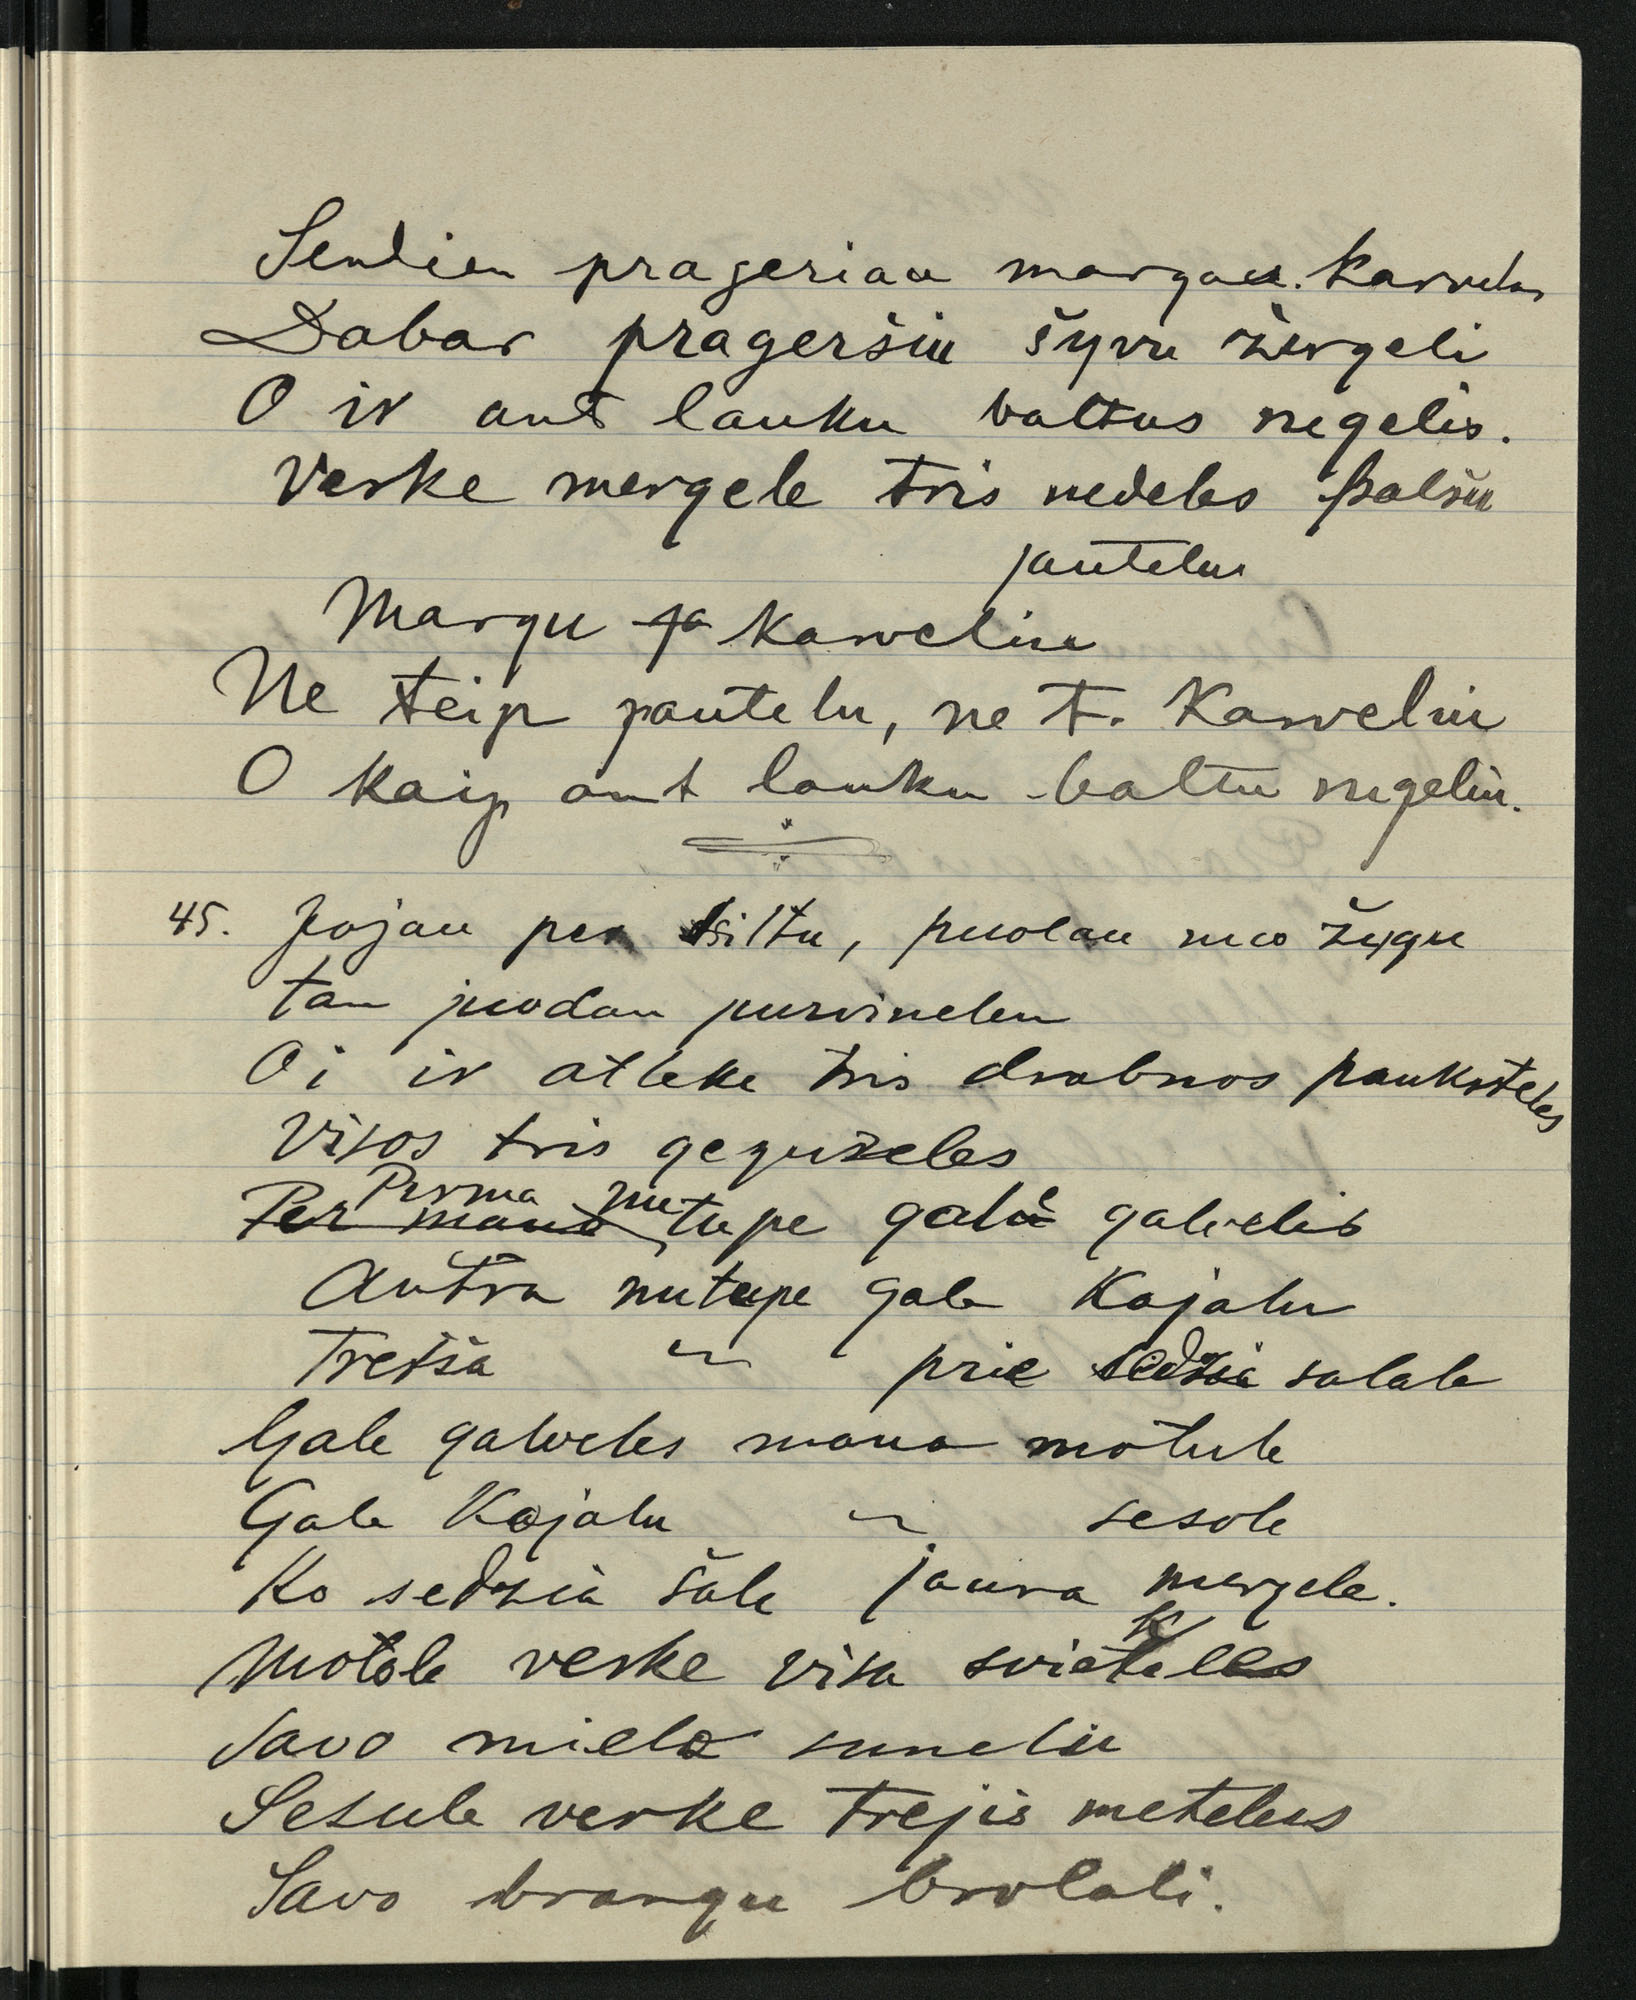 Sendien prageriau margas. karvelas
Dabar prageršiu šyvu žirgeli
O ir ant lauku baltus nigelis.
Verke mergele tris nedeles palšu
jautelu
Margu ja karveliu
Ne teip jautelu, ne t. Karveliu
O kaip ant lauku baltu nigeliu.
45. Jojau per tiltu, puolau nuo žirgu
tan juodan purvinelen
Oi ir atleke tris drabnos paukšteles
Visos tris geguželes
Per mano Pirma nutupe galė galvelis
Antra nutupe gale Kojalu
Tretša ~ prie sedzia salale
Gale galveles mana motule
Gale Kojalu ~ sesole
Ko sedzia šale jauna mergele.
Motole verke visa svietelees
Savo miela suneliu
Sesule verke trejis metelus
Savo brangu brolali.